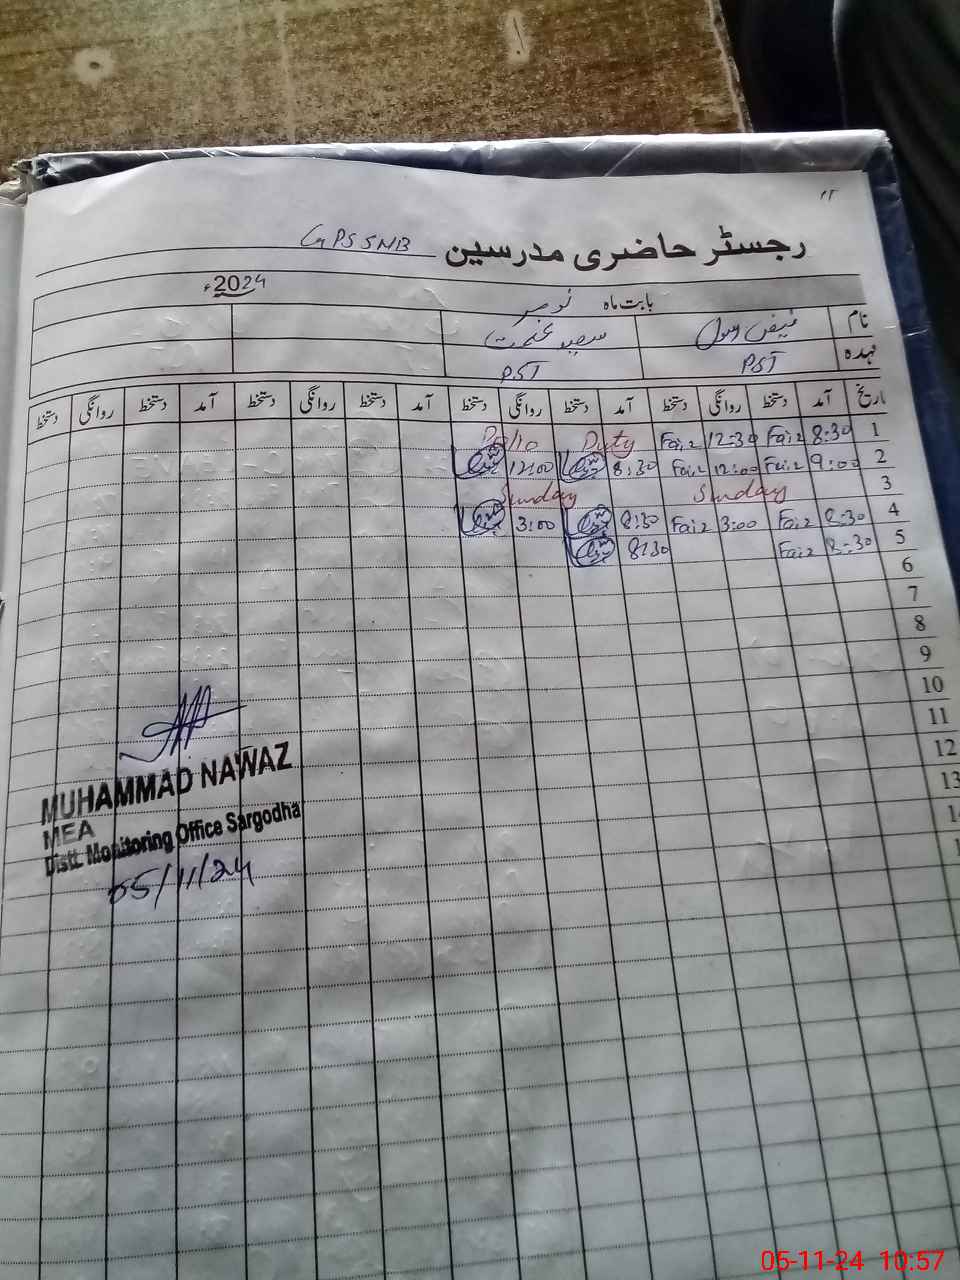 ۱۲
رجسٹر حاضری مدرسین GPS 5 NB
بابت ماہ نومبر 2024ء
نام فیض رسول سعید عظمت
عہدہ PST PST
تاریخ آمد دستخط روانگی دستخط آمد دستخط روانگی دستخط آمد دستخط روانگی دستخط آمد دستخط روانگی دستخط
1 8:30 Faiz 12:30 Faiz Polio Duty
2 9:00 Faiz 12:00 Faiz 8:30 12:00
3 Sunday Sunday
4 8:30 Faiz 3:00 Faiz 8:30 3:00
5 8:30 Faiz 8:30
6
7
8
9
10
11
12
13
MUHAMMAD NAWAZ
MEA
Distt. Monitoring Office Sargodha
05/11/24
05-11-24 10:57